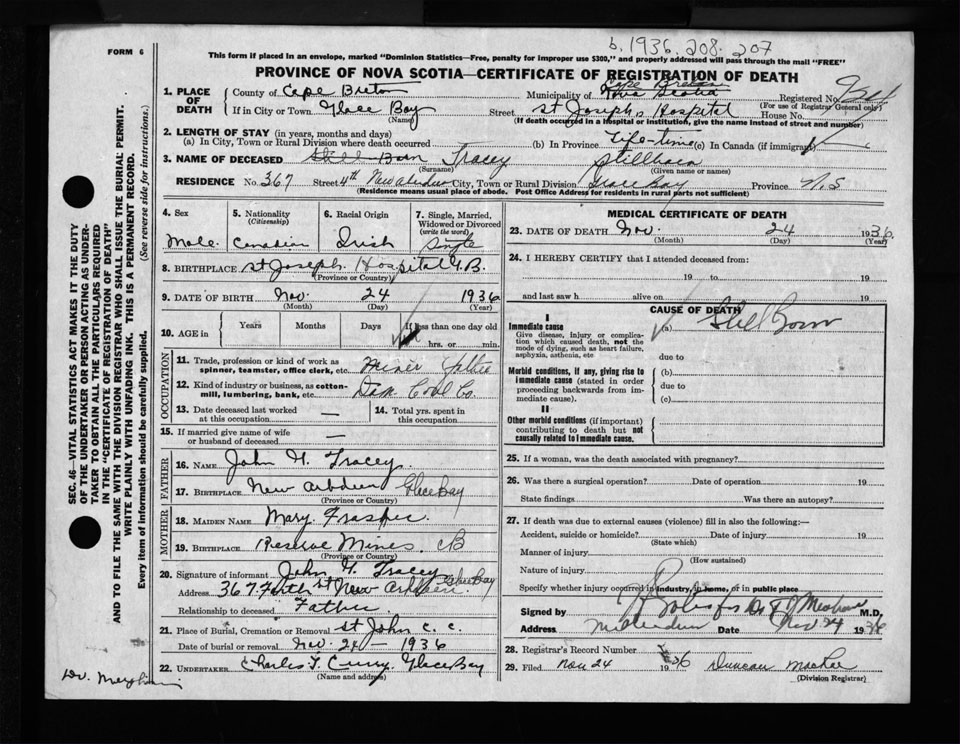 b. 1936. 208. 207
FORM 6
This form if placed in an envelope, marked "Dominion Statistics—Free, penalty for improper use $300," and properly addressed will pass through the mail "FREE"
PROVINCE OF NOVA SCOTIA—CERTIFICATE OF REGISTRATION OF DEATH
SEC. 46—VITAL STATISTICS ACT MAKES IT THE DUTY
OF THE UNDERTAKER OR PERSON ACTING AS UNDER-
TAKER TO OBTAIN ALL THE PARTICULARS REQUIRED
IN THE "CERTIFICATE OF REGISTRATION OF DEATH"
AND TO FILE THE SAME WITH THE DIVISION REGISTRAR WHO SHALL ISSUE THE BURIAL PERMIT.
WRITE PLAINLY WITH UNFADING INK. THIS IS A PERMANENT RECORD.
Every item of information should be carefully supplied. (See reverse side for instructions.)
1. PLACE OF DEATH
County of Cape Breton Municipality of Cape Breton Nova Scotia Registered No.
(For use of Registrar General only)
If in City or Town Glace Bay Street St Joseph's Hospital House No.
(Name) (If death occurred in a Hospital or institution, give the name instead of street and number)
2. LENGTH OF STAY (in years, months and days)
(a) In City, Town or Rural Division where death occurred (b) In Province Life-time (c) In Canada (if immigrant)
3. NAME OF DECEASED Still Born Tracey Stillborn
(Surname) (Given name or names)
RESIDENCE No. 367 Street 4th New Aberdeen City, Town or Rural Division Glace Bay Province N.S
(Residence means usual place of abode. Post Office Address for residents in rural parts not sufficient)
4. Sex Male
5. Nationality (Citizenship) Canadian
6. Racial Origin Irish
7. Single, Married, Widowed or Divorced (write the word) Single
8. BIRTHPLACE St Joseph Hospital G.B.
(Province or Country)
9. DATE OF BIRTH Nov. 24 1936
(Month) (Day) (Year)
10. AGE in Years Months Days If less than one day old
hrs. or min.
OCCUPATION
11. Trade, profession or kind of work as
spinner, teamster, office clerk, etc. Miner Father
12. Kind of industry or business, as cotton-
mill, lumbering, bank, etc. Dom. Coal Co.
13. Date deceased last worked at this occupation —
14. Total yrs. spent in this occupation
15. If married give name of wife
or husband of deceased —
FATHER
16. NAME John H. Tracey.
17. BIRTHPLACE New Abrdeen Glace Bay
(Province or Country)
MOTHER
18. MAIDEN NAME Mary
19. BIRTHPLACE Reserve Mines. CB
(Province or Country)
20. Signature of informant John H. Tracey
Address 367 Forth St New Abrdeen. Glace Bay
Relationship to deceased Father
21. Place of Burial, Cremation or Removal St John C. C.
Date of burial or removal Nov. 24 — 1936
22. UNDERTAKER Charles T. Curry. Glace Bay
(Name and address)
MEDICAL CERTIFICATE OF DEATH
23. DATE OF DEATH Nov. 24 1936
(Month) (Day) (Year)
24. I HEREBY CERTIFY that I attended deceased from:
19 to 19
and last saw h alive on 19
CAUSE OF DEATH
I
Immediate cause (a) Still Born
Give disease, injury or complica-
tion which caused death, not the
mode of dying, such as heart failure,
asphyxia, asthenia, etc due to
Morbid conditions, if any, giving rise to (b)
immediate cause (stated in order due to
proceeding backwards from im-
mediate cause). (c)
II
Other morbid conditions (if important)
contributing to death but not
causally related to immediate cause.
25. If a woman, was the death associated with pregnancy?
26. Was there a surgical operation? Date of operation 19
State findings Was there an autopsy?
27. If death was due to external causes (violence) fill in also the following:—
Accident, suicide or homicide? Date of injury 19
(State which)
Manner of injury
(How sustained)
Nature of injury
Specify whether injury occurred in industry, in home, or in public place
Signed by M.D.
Address Date Nov 24 1936
28. Registrar's Record Number
29. Filed Nov 24 1936 Duncan MacRae
(Division Registrar)